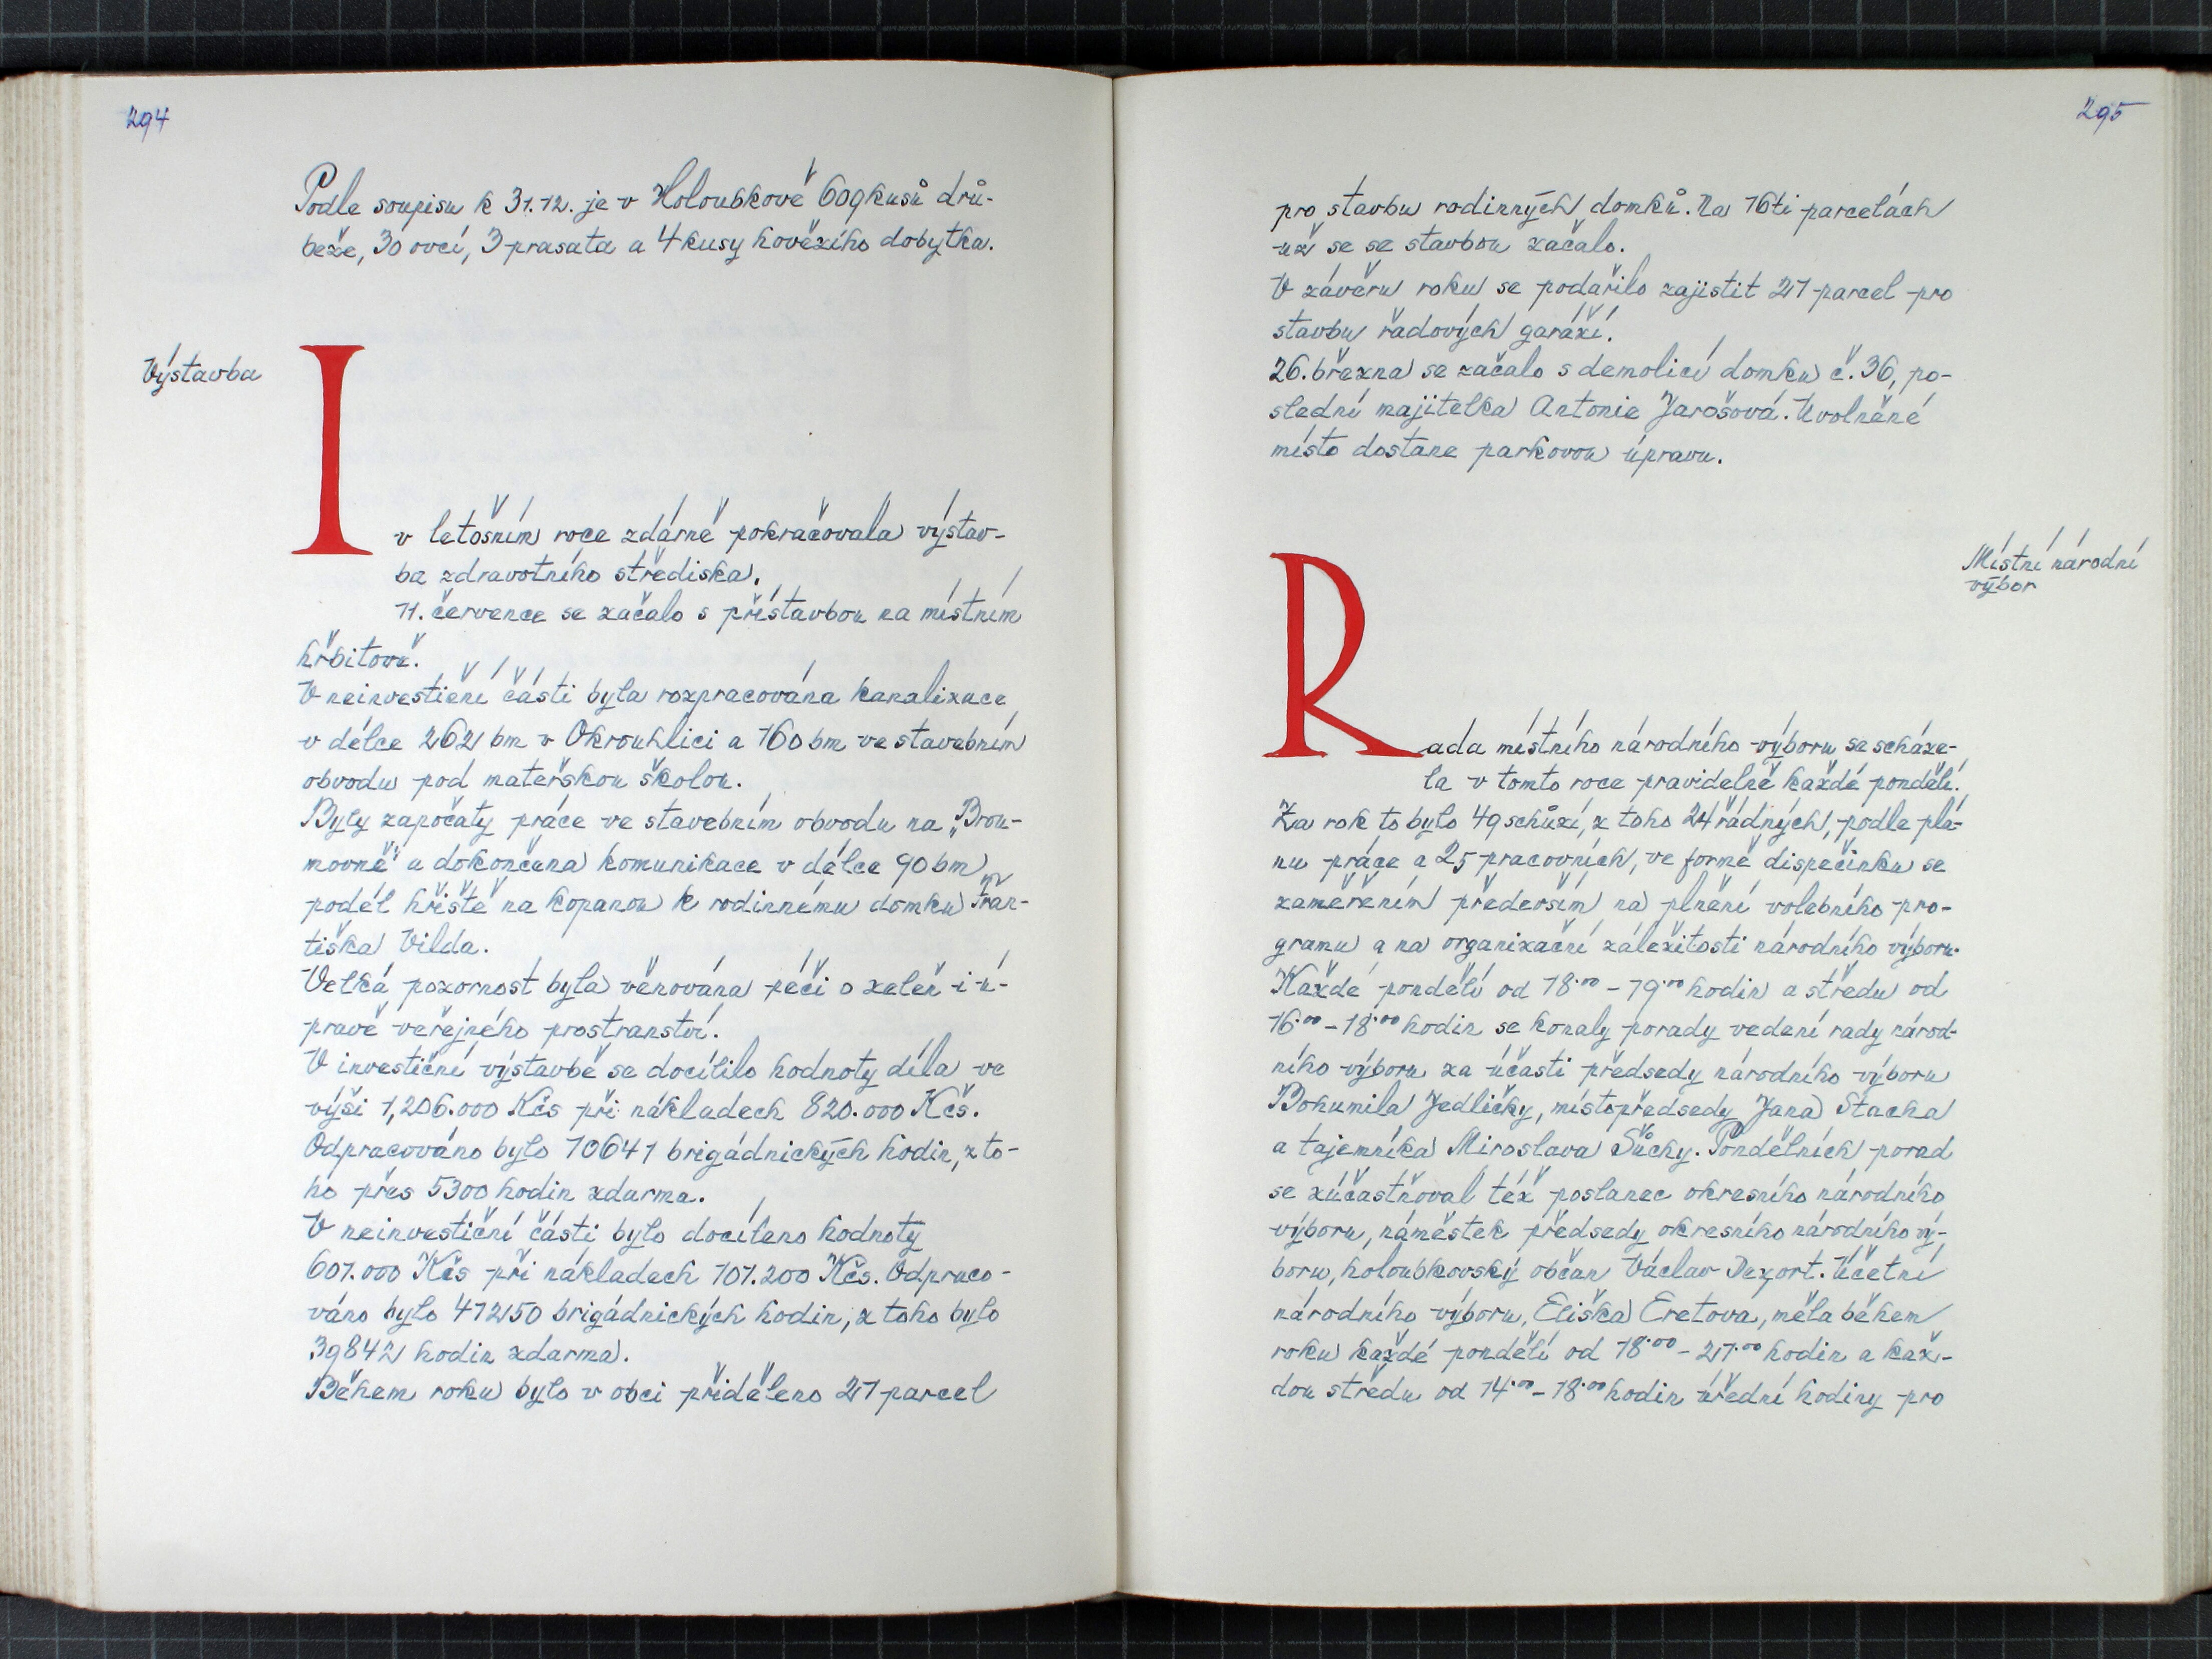 294
Podle soupisu k 31.12. je v Holoubkově 609 kusů drů-
beže, 30 ovcí, 3 prasata a 4 kusy hovězího dobytka.
Výstavba
I
v letošním roce zdárně pokračovala výstav-
ba zdravotního střediska.
11. července se začalo s přístavbou na místním
hřbitově.
V neinvestiční části byla rozpracována kanalizace
v délce 262 bm v Okrouhlici a 160 bm ve stavebním
obvodu pod mateřskou školou.
Byly započaty práce ve stavebním obvodu na „Brou-
movně" a dokončena komunikace v délce 90 bm
podél hřiště na kopanou k rodinnému domku Fran-
tiška Vilda.
Velká pozornost byla věnována péči o zeleň i ú-
pravě veřejného prostranství.
V investiční výstavbě se docílilo hodnoty díla ve
výši 1,206.000 Kčs při nákladech 820.000 Kčs.
Odpracováno bylo 10641 brigádnických hodin, z to-
ho přes 5300 hodin zdarma.
V neinvestiční části bylo docíleno hodnoty
601.000 Kčs při nákladech 101.200 Kčs. Odpraco-
váno bylo 41250 brigádnických hodin, z toho bylo
39842 hodin zdarma.
Během roku bylo v obci přiděleno 21 parcel
295
pro stavbu rodinných domků. Na 16ti parcelách
už se se stavbou začalo.
V závěru roku se podařilo zajistit 21 parcel pro
stavbu řadových garáží.
26. března se začalo s demolicí domku č. 36, po-
slední majitelka Antonie Jarošová. Uvolněné
místo dostane parkovou úpravu.
Místní národní
výbor
Rada místního národního výboru se scháze-
la v tomto roce pravidelně každé pondělí.
Za rok to bylo 49 schůzí, z toho 24 řádných, podle plá-
nu práce a 25 pracovních, ve formě dispečinku se
zaměřením především na plnění volebního pro-
gramu a na organizační záležitosti národního výboru.
Každé pondělí od 18.00 - 19.00 hodin a středu od
16.00 - 18.00 hodin se konaly porady vedení rady národ-
ního výboru za účasti předsedy národního výboru
Bohumila Jedličky, místopředsedy Jana Stacha
a tajemníka Miroslava Sůchy. Pondělních porad
se zúčastňoval též poslanec okresního národního
výboru, náměstek předsedy okresního národního vý-
boru, holoubkovský občan Václav Dezort. Účetní
národního výboru, Eliška Eretova, měla během
roku každé pondělí od 18.00 - 21.00 hodin a kaž-
dou středu od 14.00 - 18.00 hodin úřední hodiny pro